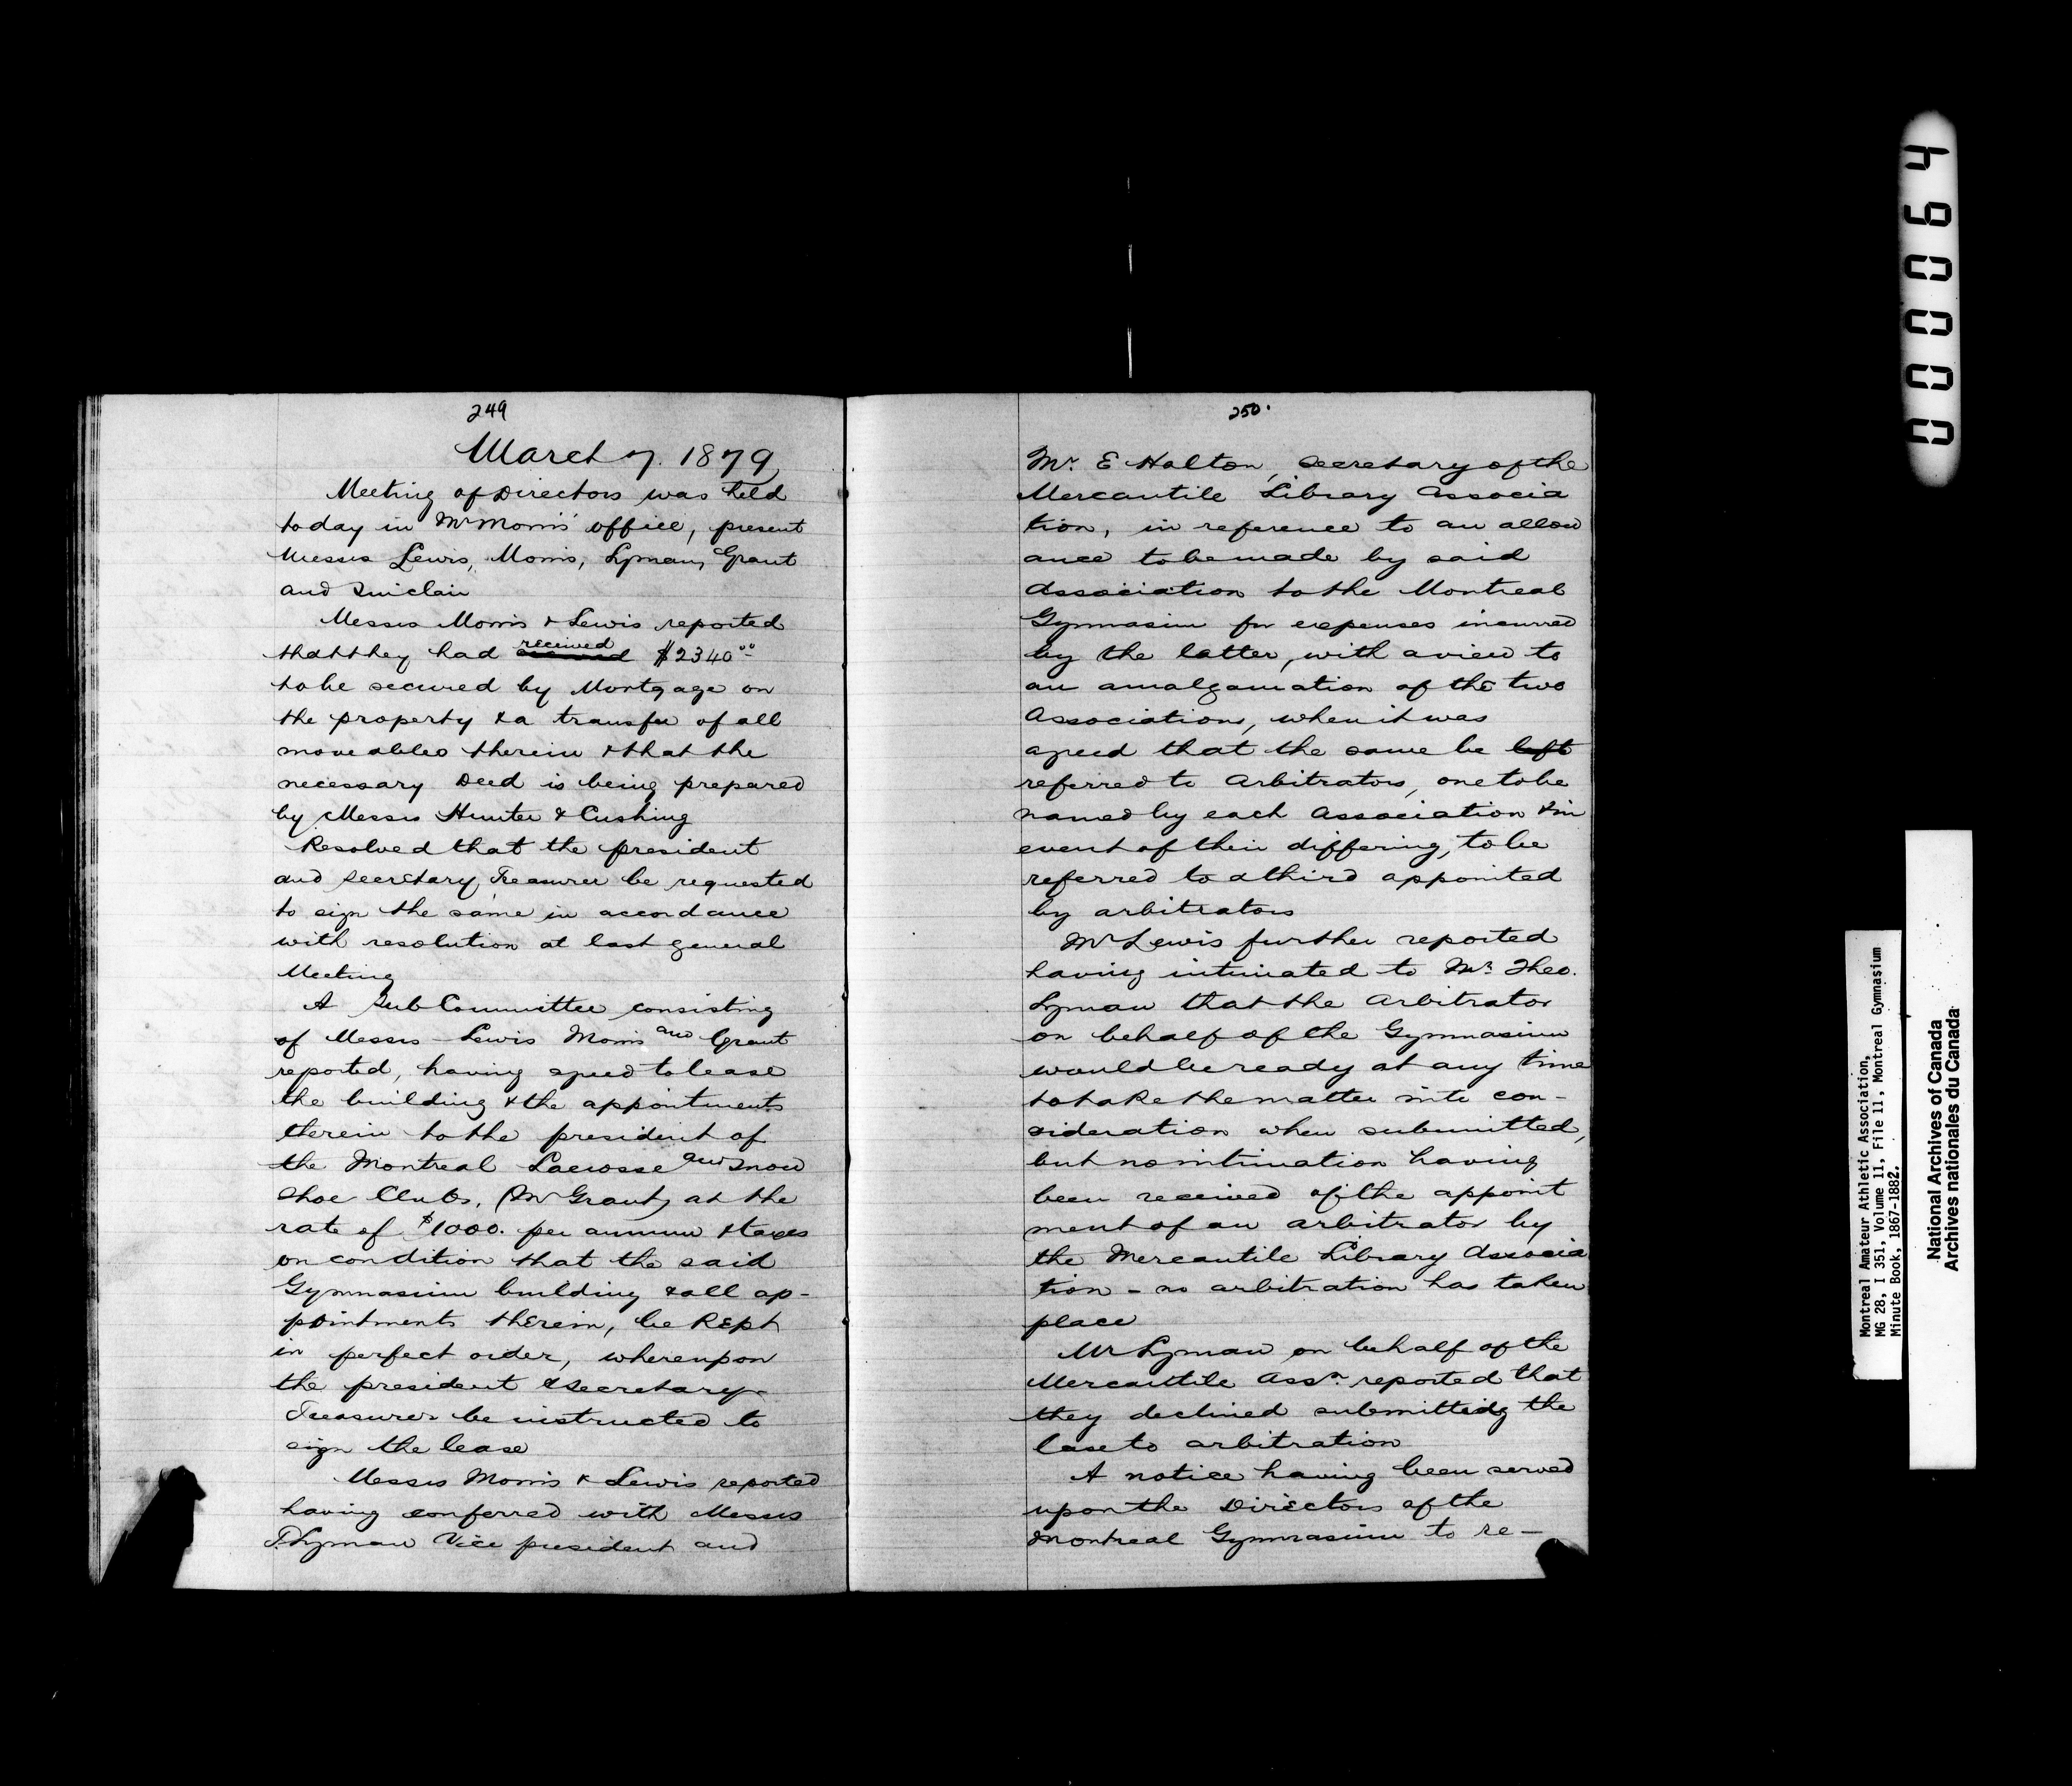 249
March 7. 1879
Meeting of Directors was held
today in Mr Morris' office, present
Messrs Lewis, Morris, Lyman, Grant
and Sinclair
Messrs Morris & Lewis reported
that they had received $2340.00
to be secured by Mortgage on
the property & a transfer of all
moveables therein & that the
necessary Deed is being prepared
by Messrs Hunter & Cushing
Resolved that the president
and Secretary, Treasurer be requested
to sign the same in accordance
with resolution at last general
Meeting
A Sub Committee consisting
of Messrs - Lewis Morris and Grant
reported, having agreed to lease
the building & the appointments
therein to the president of
the Montreal Lacrosse and Snow
Shoe Clubs, (Mr Grant) at the
rate of $1000. per annum & taxes
on condition that the said
Gymnasium building & all ap-
pointments therein, be kept
in perfect order, whereupon
the president & Secretary-
Treasurer be instructed to
sign the lease
Messrs Morris & Lewis reported
having conferred with Messrs
T. Lyman Vice president and
250.
Mr. E Holton, Secretary of the
Mercantile Library Associa
tion, in reference to an allow
ance to be made by said
Association to the Montreal
Gymnasium for expenses incurred
by the latter, with a view to
an amalgamation of the two
Associations, when it was
agreed that the same be left
referred to Arbitrators, one to be
named by each Association & in
event of their differing, to be
referred to a third appointed
by arbitrators
Mr Lewis further reported
having intimated to Mr. Theo.
Lyman that the Arbitrator
on behalf of the Gymnasium
would be ready at any time
to take the matter into con-
sideration when submitted,
but no intimation having
been received of the appoint
ment of an arbitrator by
the Mercantile Library Associa
tion - no arbitration has taken
place
Mr Lyman on behalf of the
Mercantile Assn. reported that
they declined submitting the
Case to arbitration
A notice having been served
upon the Directors of the
Montreal Gymnasium to re-
000064
Montreal Amateur Athletic Association,
MG 28, I 351, Volume 11, File 11, Montreal Gymnasium
Minute Book, 1867-1882.
National Archives of Canada
Archives nationales du Canada